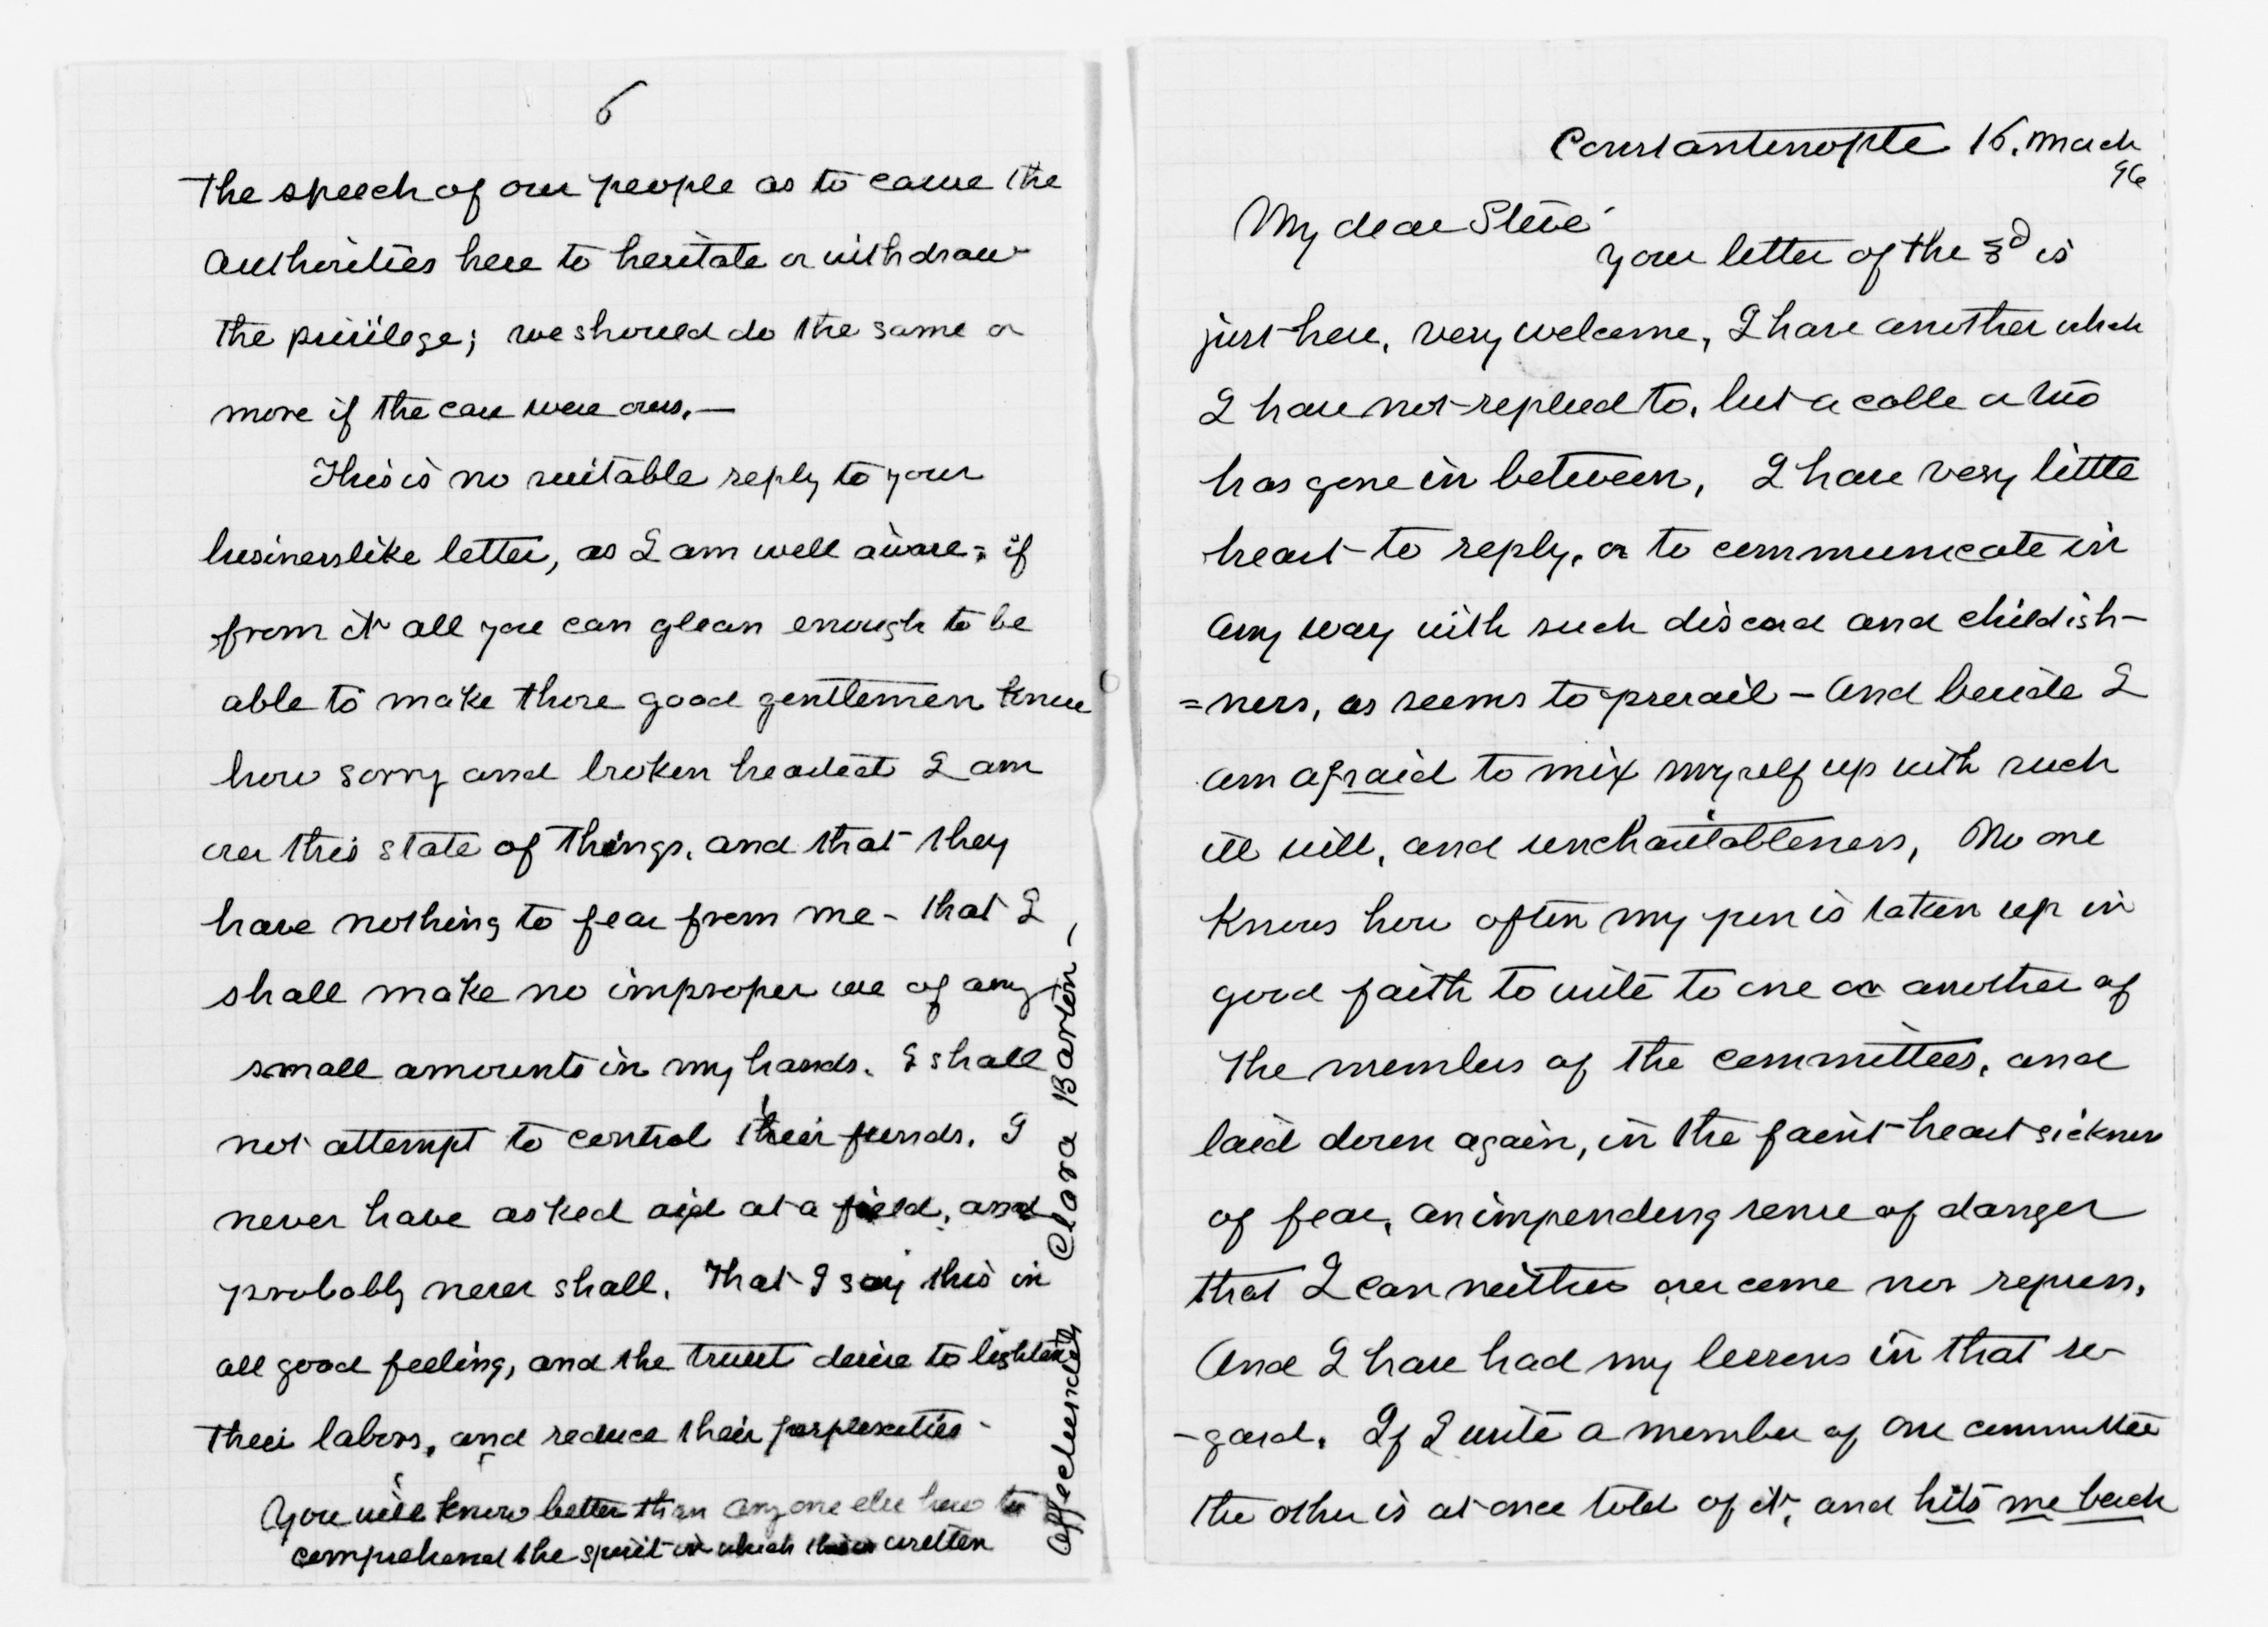 6
the speech of our people as to cause the
authorities here to hesitate or withdraw
the privilege; we should do the same or
more if the case were ours.—
This is no suitable reply to your
businesslike letter, as I am well aware; if
from it all you can glean enough to be
able to make those good gentlemen know
how sorry and broken hearted I am
over this state of things, and that they
have nothing to fear from me - that I
shall make no improper use of any
small amounts in my hands. I shall
not attempt to control their funds. I
never have asked aid at a field, and
probably never shall. That I say this in
all good feeling, and the truest desire to lighten
their labors, and reduce their perplexities -
You will know better than any one else how to
comprehend the spirit in which this is written
Affectionately Clara Barton,
Constantinople 16, March
96
My dear Steve'
Your letter of the 3d is
just here, very welcome, I have another which
I have not replied to, but a cable or two
has gone in between, I have very little
heart to reply, or to communicate in
any way with such discord and childish-
=ness, as seems to prevail - And beside I
am afraid to mix myself up with such
ill will, and uncharitableness, No one
knows how often my pen is taken up in
good faith to write to one or another of
the members of the committees, and
laid down again, in the faint-heart sickness
of fear, an impending sense of danger
that I can neither overcome nor repress,
And I have had my lessons in that re-
-gard. If I write a member of one committee
the other is at once told of it, and hits me back